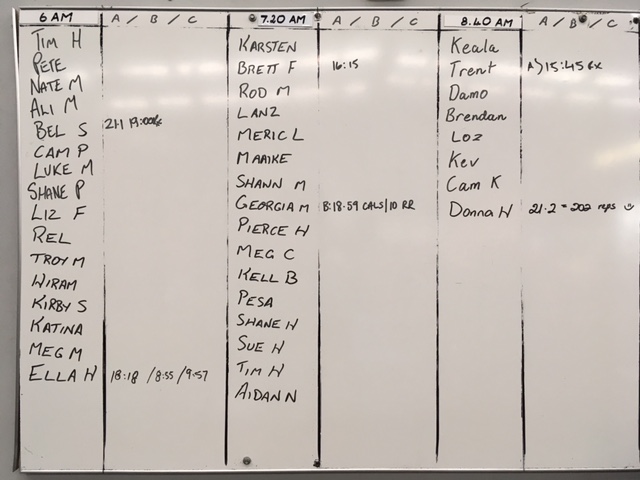 6 AM A / B / C
TIM H
PETE
NATE M
ALI M
BEL S
CAM P
LUKE M
SHANE P
LIZ F
REL
TROY M
WIRAM
KIRBY S
KATINA
MEG M
ELLA H 18:18 / 8:55 / 9:57
7.20 AM A / B / C
KARSTEN
BRETT F 16:15
ROD M
LANZ
MERIC L
MAAIKE
SHANN M
GEORGIA M B:18.59 CALS/10 RR
PIERCE H
MEG C
KELL B
PESA
SHANE H
SUE H
TIM H
AIDAN N
8.40 AM A / B / C
Keala
Trent A) 15:45 RX
Damo
Brendan
Loz
Kev
Cam K
Donna H 21.2 = 202 reps